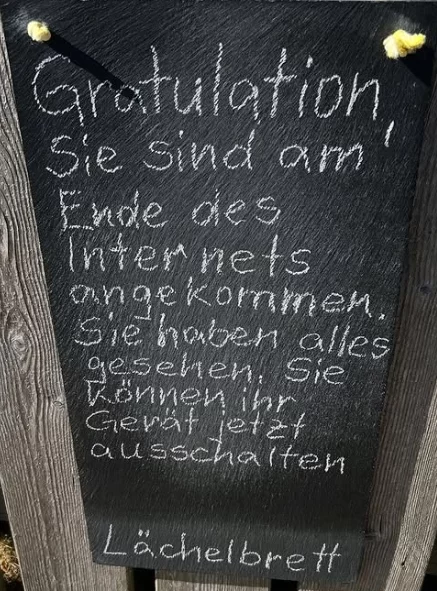 Gratulation,
Sie sind am
Ende des
Internets
angekommen.
Sie haben alles
gesehen. Sie
können ihr
Gerät jetzt
ausschalten
Lächelbrett